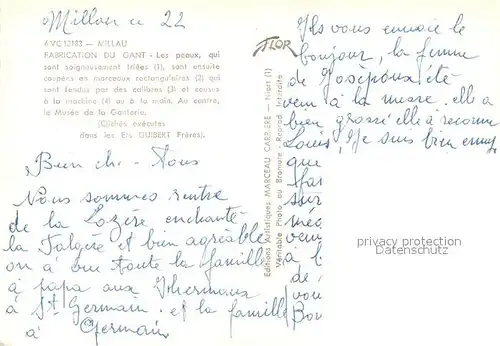 Millau le 22
6 VC 10183 — MILLAU
FABRICATION DU GANT - Les peaux, qui
sont soigneusement triées (1), sont ensuite
coupées en morceaux rectangulaires (2) qui
sont fendus par des calibres (3) et cousus
à la machine (4) ou à la main. Au centre,
le Musée de la Ganterie.
(Clichés exécutés
dans les Ets GUIBERT Frères).
Bien ch - Tous
Nous sommes rentre
de la Lozère enchanté
la et bien agréable
on à vue toute la famille
à papa aux
à St Germain. et la famille
à Germain
FLOR
Editions Artistiques MARCEAU CARRIERE - Niort (1)
Véritable Photo au Bromure - Reprod. Interdite
Ils vous envoie le
bonjour, la femme
de été
veni à la messe. elle a
bien grossé elle à
Louis, Je suis bien
que
sur
veni
à l
de
vou
Bon
privacy protection
Datenschutz